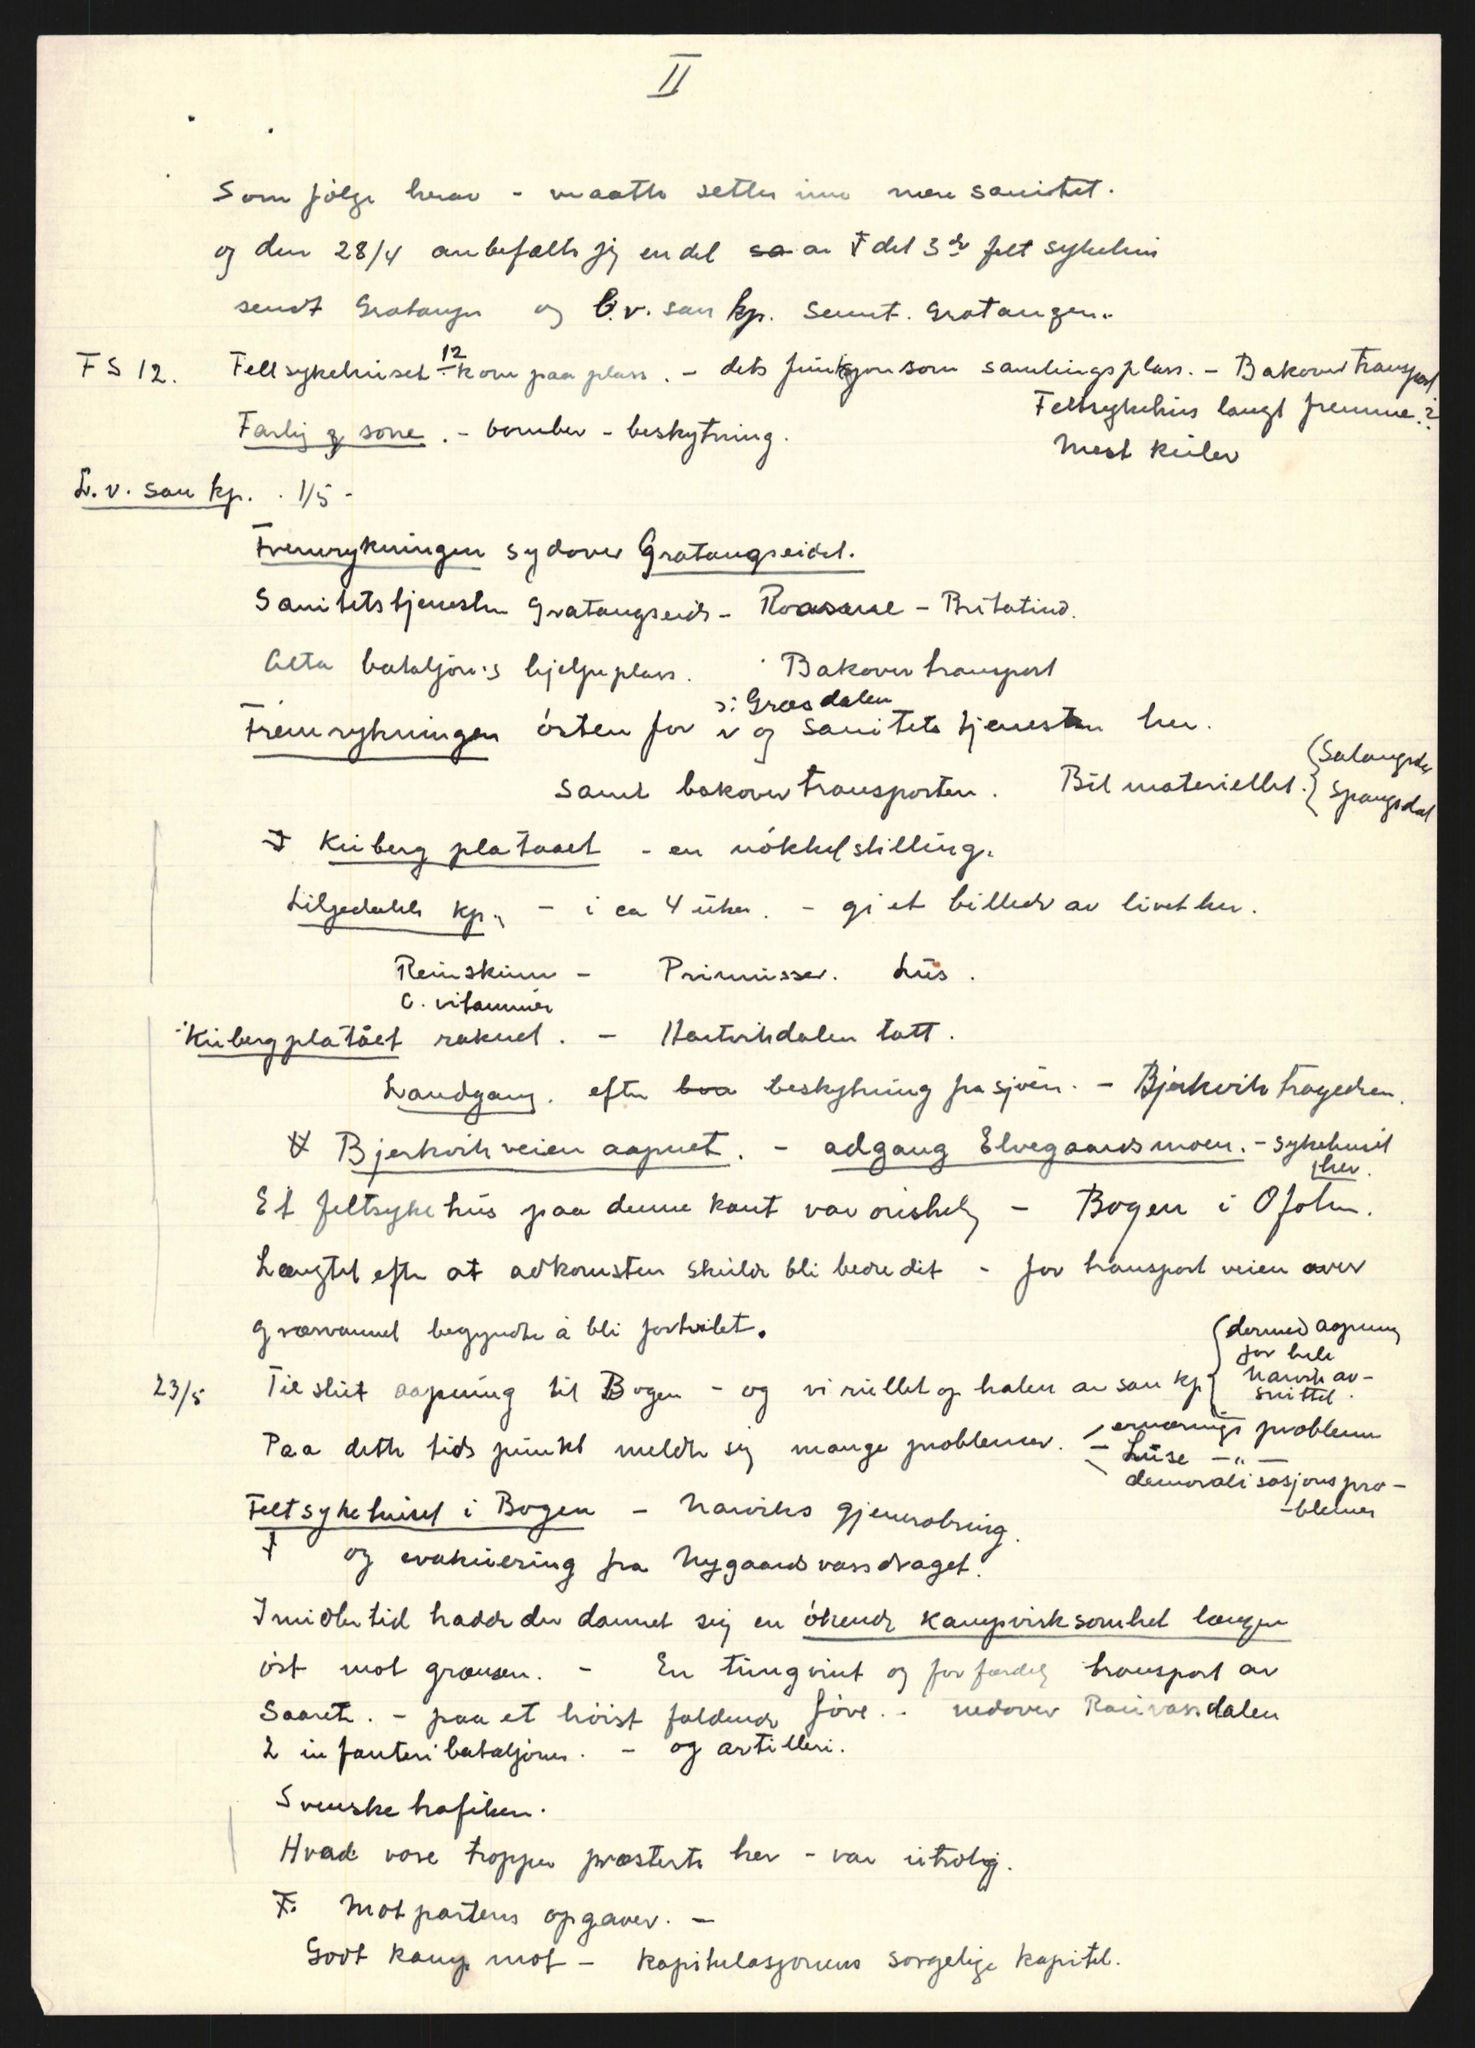 II
Som følge herav - maatte settes inn mere sanitet.
og den 28/4 anbefalte jeg en del sa av det 3de felt sykehus
sendt Gratangen og L.v. san kp. samt. Gratangen.
FS 12. Feltsykehuset 12 kom paa plass. - dets funksjon som samlingsplass. - Bakover transport
Feltsykehus langt fremme.?
Farlig sone. - bomber - beskytning.
Mest kuler
L.v. san kp. . 1/5 -
Fremrykningen sydover Gratangseidet.
Sanitetstjenesten Gratangseidet - Roasme - Britatind.
Alta bataljon's hjelpeplass. Bakover transport
ɔ: Græsdalen
Fremrykningen østen for v og Sanitets tjenesten her.
samt bakover transporten. Bil materiellet. { Salangsdal
Spangsdal
Kuberg plataaet - en nøkkelstilling.
Liljedahls kp., - i ca 4 uker. - gi et billede av livet her.
Reinskinn - Primusser. Lus.
C. vitaminer
Kubergplatået raknet. - Hartvikdalen tatt.
Landgang. efter bva beskytning fra sjøen. - Bjerkvik tragedien.
Bjerkvik veien aapnet. - adgang Elvegaardsmoen. - sykehuset
her.
Et feltsykehus paa denne kant var ønskelig - Bogen i Ofoten.
Længtet efter at adkomsten skulde bli bedre dit - for transport veien over
græsvannet begyndte å bli fortvilet.
23/5 Til slut aapning til Bogen - og vi rullet op halen av san kp { dermed aapning
for hele
Narvik av-
snittet.
Paa dette tids punkt meldte sig mange problemer. - ernærings problemer
- Luse - " -
demoralisasjons pro-
-blemer
Feltsykehuset i Bogen - Narviks gjenerobring.
og evakuering fra Nygaards vassdraget.
Imidlertid hadde der dannet sig en økende kampvirksomhet længer
øst mot grænsen. - En tungvint og forfærdelig transport av
Saarete. - paa et høist faldende føre. - nedover Rauvassdalen
2 infanteri bataljoner. - og artilleri.
Svenske trafiken.
Hvad vore tropper præsterte her - var utrolig.
Motpartens opgaver. -
Godt kamp mot - kapitulasjonens sorgelige kapitel.